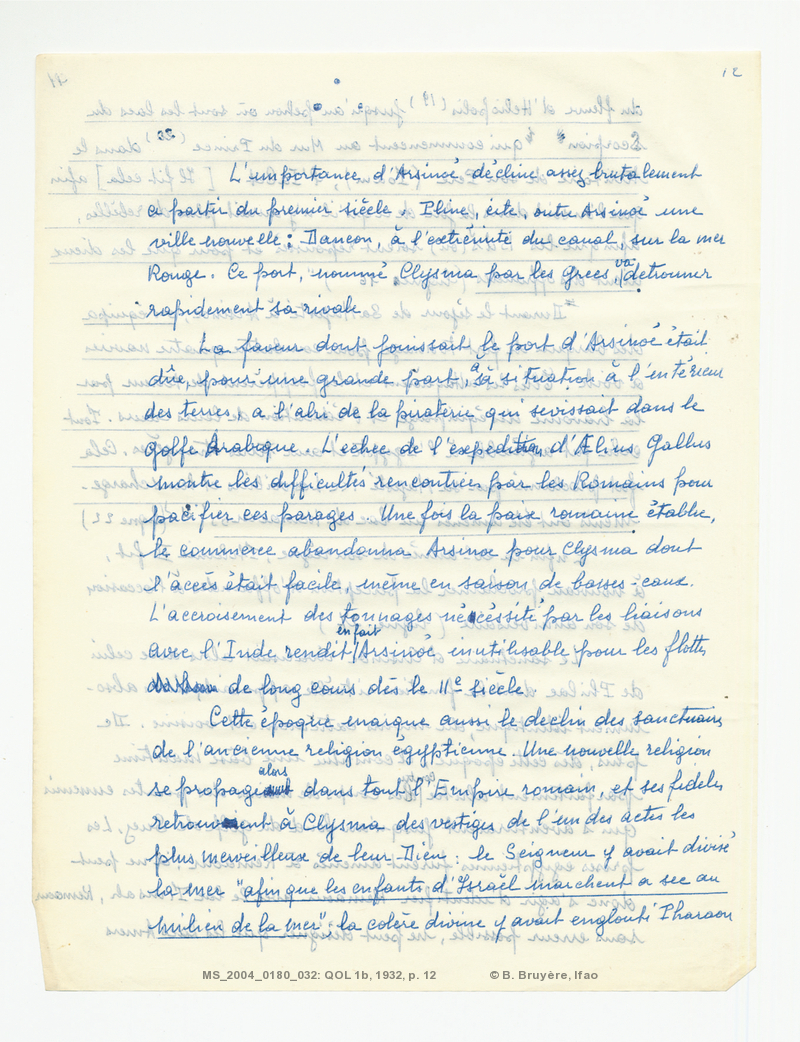 12
L'importance d'Arsinoé décline assez brutalement
a partir du premier siècle. Pline, cite, outre Arsinoé une
ville nouvelle : Daneon, à l'extrémité du canal, sur la mer
Rouge. Ce port, nommé Clysma par les Grecs, va détronner
rapidement sa rivale
La faveur dont jouissait le port d'Arsinoé était
dûe, pour une grande part, à sa situation à l'intérieur
des terres, a l'abri de la piraterie qui sevissait dans le
golfe Arabique. L'echec de l'expedition d'Ælius Gallus
montre les difficultés rencontrées par les Romains pour
pacifier ces parages. Une fois la paix romaine établie,
le commerce abandonna Arsinoe pour Clysma dont
l'accès était facile, même en saison de basses-eaux.
L'accroisement des tonnages nécéssité par les liaisons
avec l'Inde rendit en fait Arsinoé inutilisable pour les flottes
de long cours dès le IIe siècle
Cette époque marque aussi le declin des sanctuaires
de l'ancienne religion égyptienne. Une nouvelle religion
se propage alors dans tout l'Empire romain, et ses fidèles
retrouvent à Clysma des vestiges de l'un des actes les
plus merveilleux de leur Dieu : le Seigneur y avait divisé
la mer "afin que les enfants d'Israël marchent a sec au
milieu de la mer"; la colère divine y avait englouti Pharaon
MS_2004_0180_032: QOL 1b, 1932, p. 12 © B. Bruyère, Ifao